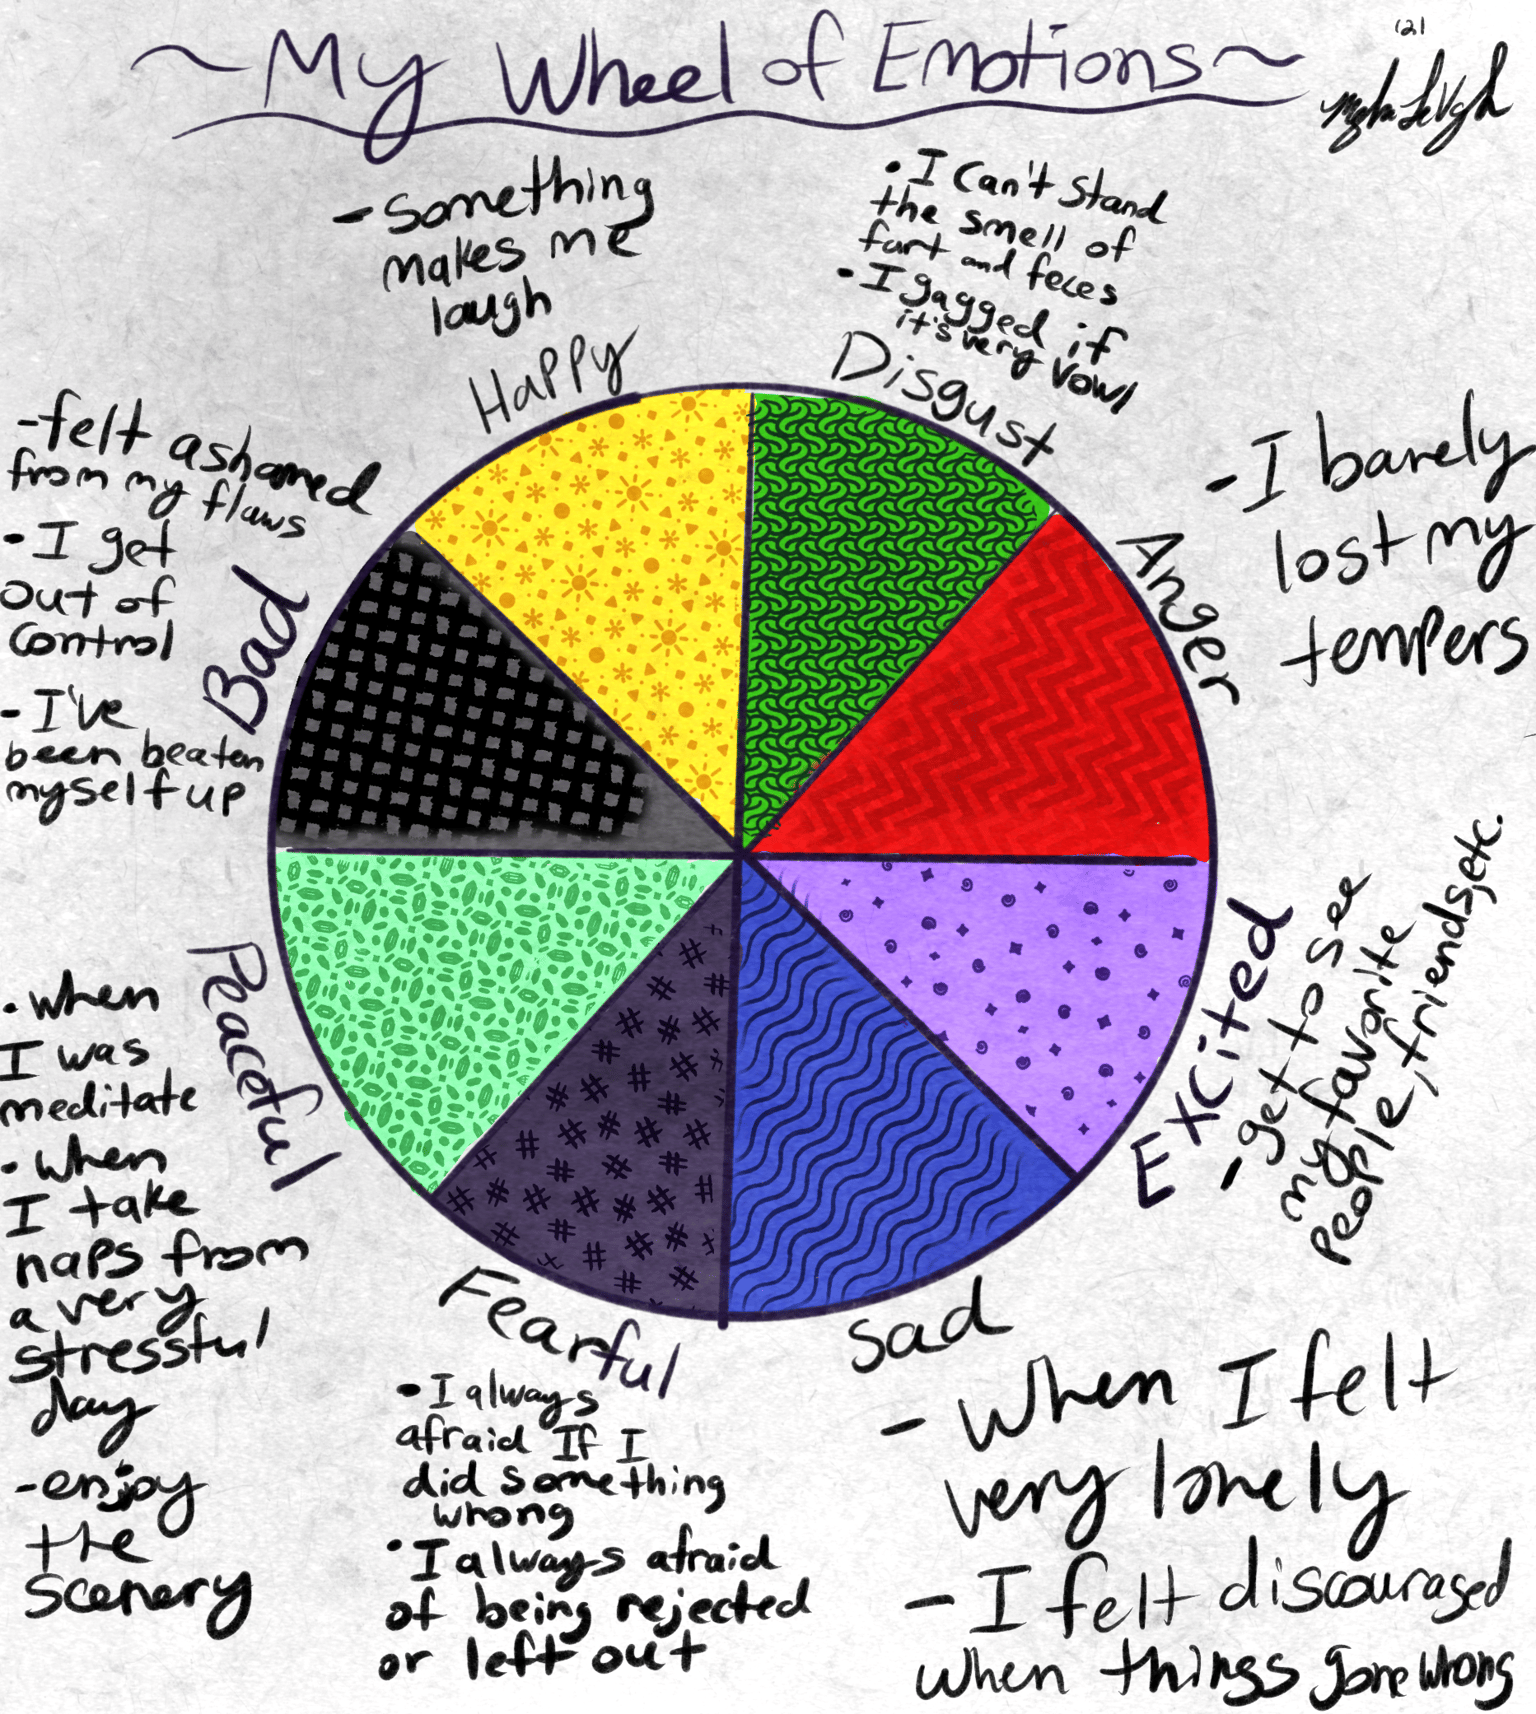 ~My Wheel of Emotions~
- Something
makes me
laugh
Happy
• I can't stand
the smell of
fart and feces
• I gagged if
it's very vowl
Disgust
- I barely
lost my
tempers
Anger
-felt ashamed
from my flaws
• I get
out of
control
- I've
been beaten
myself up
Bad
Excited
- get to see
my favorite
people, friends, etc.
Peaceful
• when
I was
meditate
• when
I take
naps from
a very
stressful
day
-enjoy
the
scenery
Fearful
• I always
afraid If I
did something
wrong
• I always afraid
of being rejected
or left out
Sad
- When I felt
very lonely
- I felt discouraged
when things gone wrong